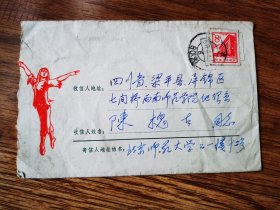 收信人地址： 四川省梁平县屏锦区
七间桥西南师范学院地理系
收信人姓名： 陳槐古 同志
寄信人地址姓名： 北京师范大学